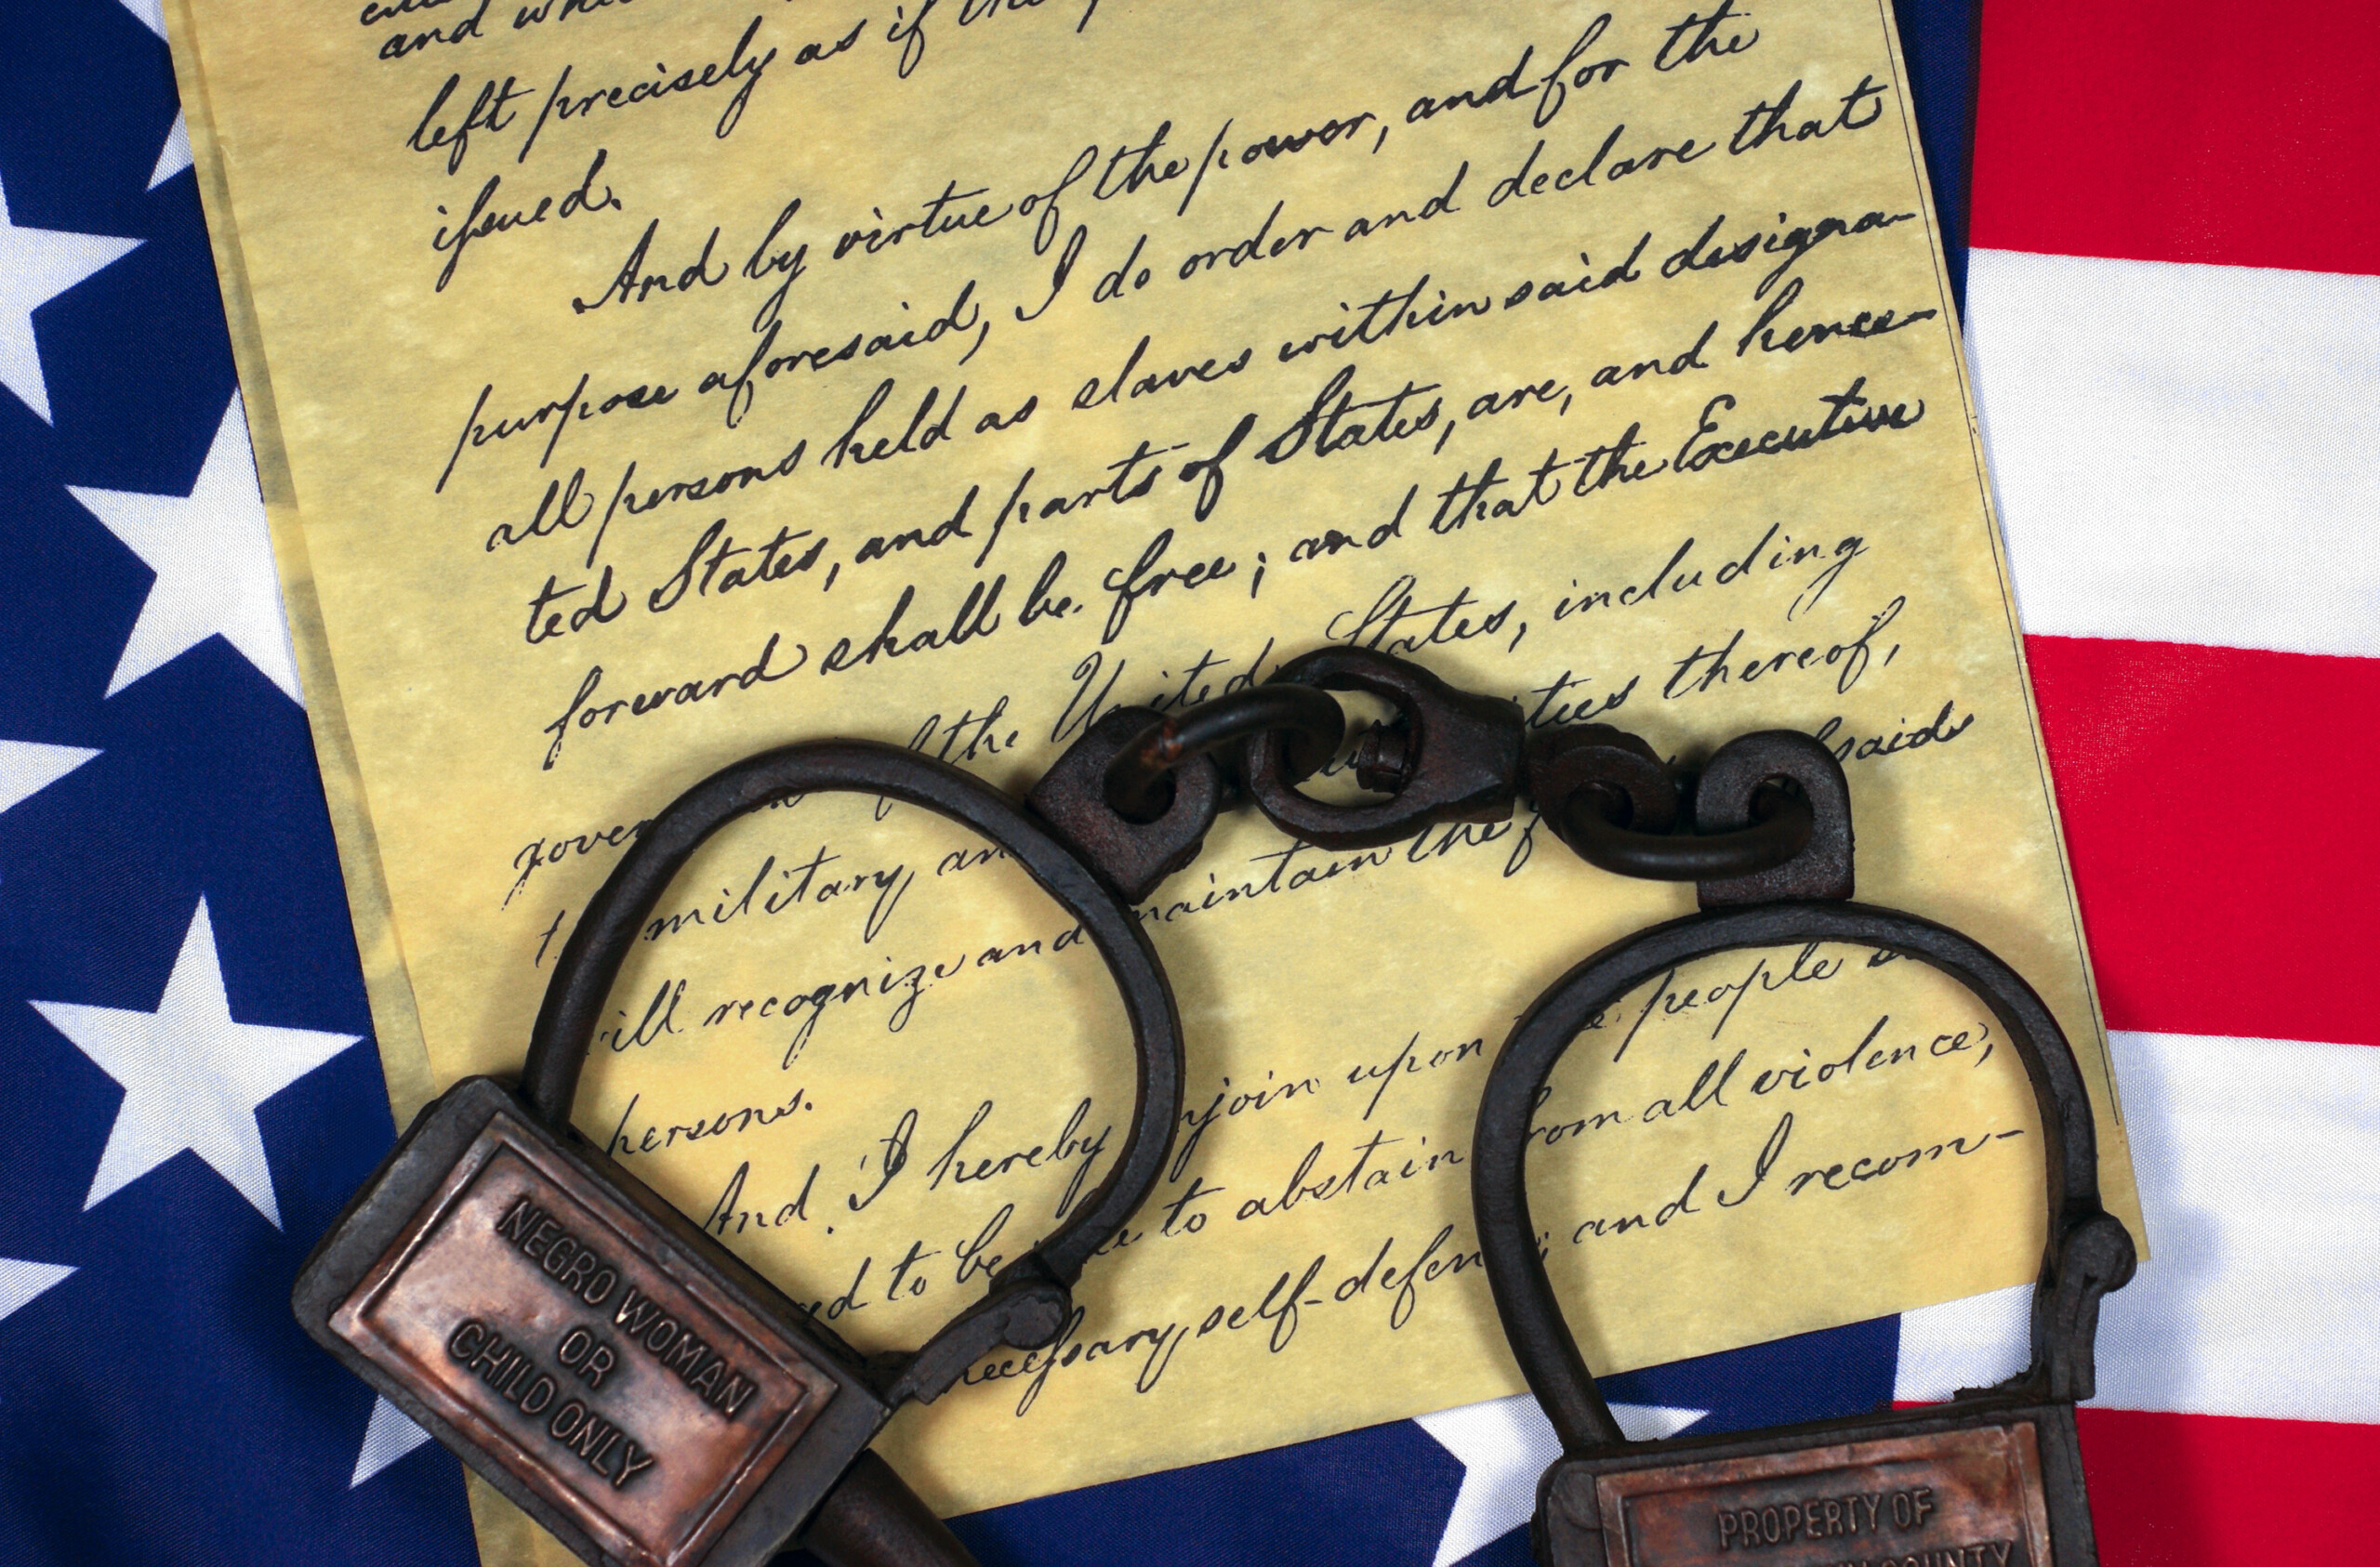 and
left precisely as if
issued.
And by virtue of the power, and for the
purpose aforesaid, I do order and declare that
all persons held as slaves within said designa-
ted States, and parts of States, are, and hence-
forward shall be free; and that the Executive
the United States, including
military, thereof,
recognize and maintain the said
persons.
And I hereby upon people
to be to abstain from all violence,
necessary self-defen and I recom-
NEGRO WOMAN
OR
CHILD ONLY
PROPERTY OF
COUNTY